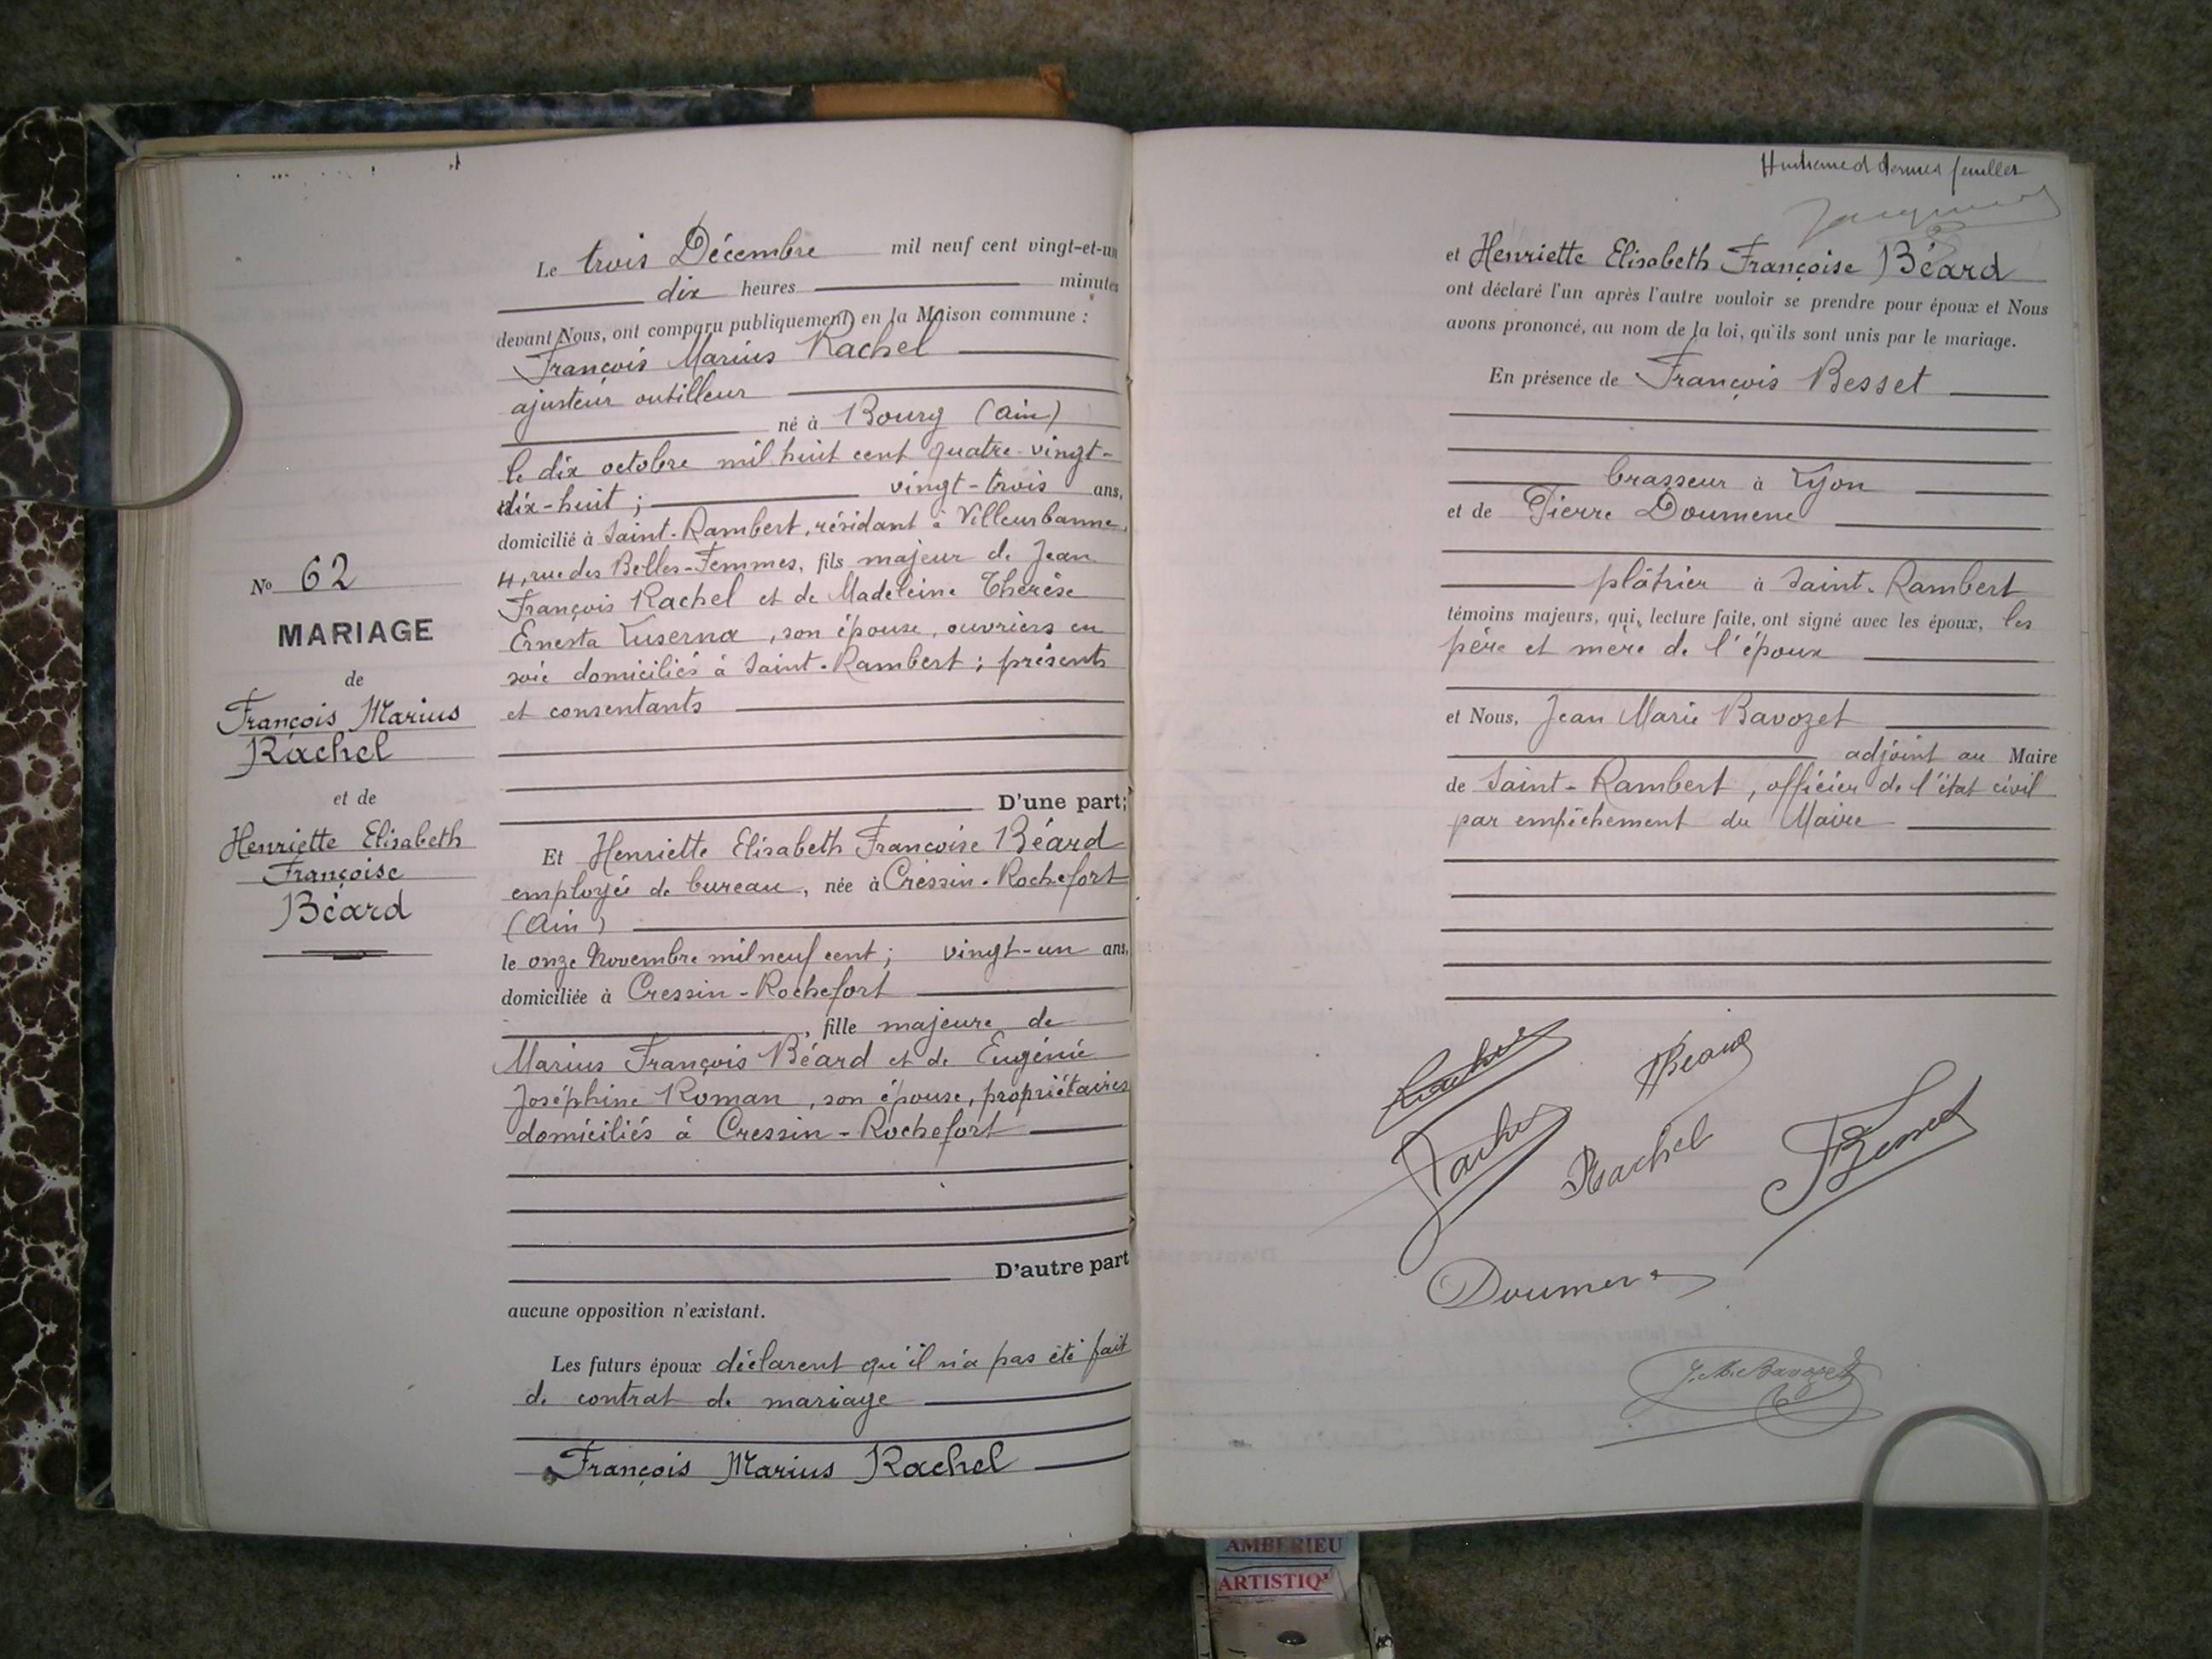 N° 62
MARIAGE
de
François Marius
Rachel
et de
Henriette Elisabeth
Françoise
Béard
Le trois Décembre mil neuf cent vingt-et-un
dix heures minutes
devant Nous, ont comparu publiquement en la Maison commune :
François Marius Rachel
ajusteur outilleur
né à Bourg (Ain)
le dix octobre mil huit cent quatre-vingt-
dix-huit ; vingt-trois ans,
domicilié à Saint-Rambert, résidant à Villeurbanne,
4, rue des Belles-Femmes, fils majeur de Jean
François Rachel et de Madeleine Thérèse
Ernesta Luserna, son épouse, ouvriers en
soie domiciliés à Saint-Rambert ; présents
et consentants
D'une part;
Et Henriette Elisabeth Françoise Béard
employée de bureau, née à Cressin-Rochefort
(Ain)
le onze Novembre mil neuf cent ; vingt-un ans,
domiciliée à Cressin-Rochefort
, fille majeure de
Marius François Béard et de Eugénie
Joséphine Roman, son épouse, propriétaires
domiciliés à Cressin-Rochefort
D'autre part
aucune opposition n'existant.
Les futurs époux déclarent qu'il n'a pas été fait
de contrat de mariage
François Marius Rachel
feuillet
et Henriette Elisabeth Françoise Béard
ont déclaré l'un après l'autre vouloir se prendre pour époux et Nous
avons prononcé, au nom de la loi, qu'ils sont unis par le mariage.
En présence de François Besset
brasseur à Lyon
et de Pierre Doumene
plâtrier à Saint-Rambert
témoins majeurs, qui, lecture faite, ont signé avec les époux, les
père et mère de l'époux
et Nous, Jean Marie Bavozet
adjoint au Maire
de Saint-Rambert, officier de l'état civil
par empêchement du Maire
HBéard
Rachel
Rachel
FBesset
J.M. Bavozet
AMBERIEU
ARTISTIQ